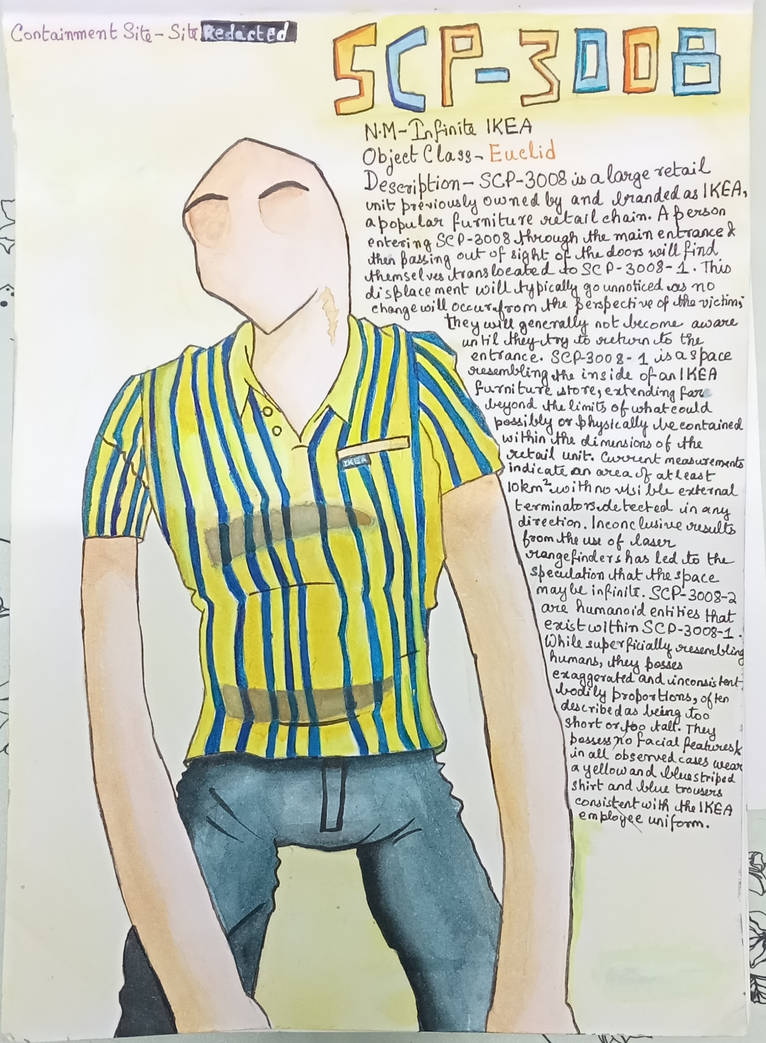 Containment Site - Site Redacted
SCP-3008
N.M - Infinite IKEA
Object Class - Euclid
Description - SCP-3008 is a large retail
unit previously owned by and branded as IKEA,
a popular furniture retail chain. A person
entering SCP-3008 through the main entrance &
then passing out of sight of the doors will find
themselves translocated to SCP-3008-1. This
displacement will typically go unnoticed as no
change will occur from the perspective of the victim;
they will generally not become aware
until they try to return to the
entrance. SCP-3008-1 is a space
resembling the inside of an IKEA
furniture store, extending far
beyond the limits of what could
possibly or physically be contained
within the dimensions of the
retail unit. Current measurements
indicate an area of at least
10km² with no visible external
terminators detected in any
direction. Inconclusive results
from the use of laser
rangefinders has led to the
speculation that the space
may be infinite. SCP-3008-2
are humanoid entities that
exist within SCP-3008-1.
While superficially resembling
humans, they posses
exaggerated and inconsistent
bodily proportions, often
described as being too
short or too tall. They
possess no facial features &
in all observed cases wear
a yellow and blue striped
shirt and blue trousers
consistent with the IKEA
employee uniform.
IKEA